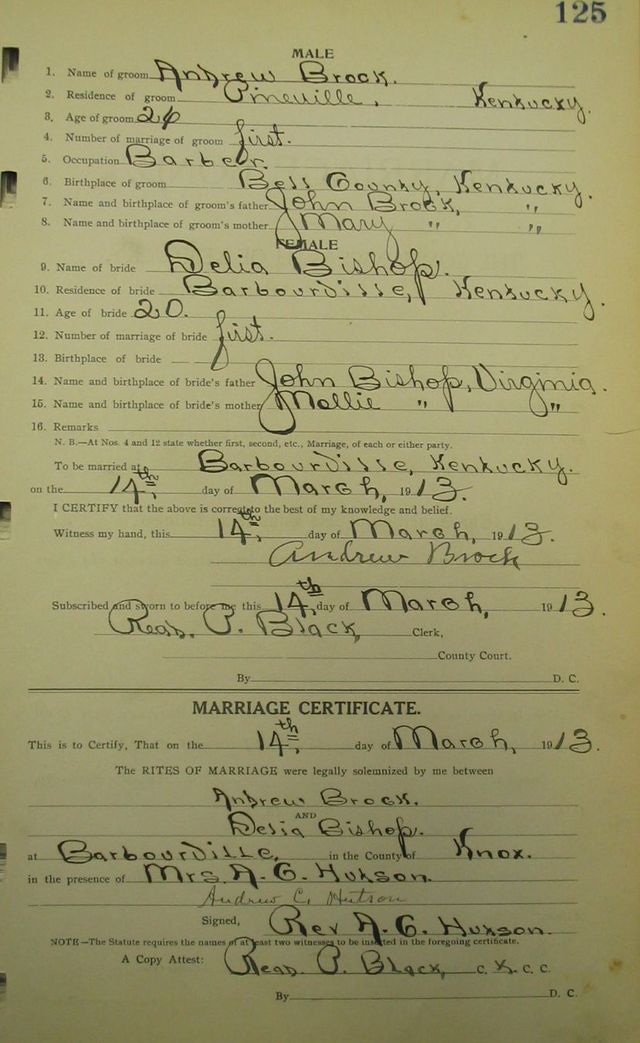 125
MALE
1. Name of groom Andrew Brock.
2. Residence of groom Pineville, Kentucky.
3. Age of groom
4. Number of marriage of groom first.
5. Occupation Barber.
6. Birthplace of groom Bell County, Kentucky.
7. Name and birthplace of groom's father John Brock, "
8. Name and birthplace of groom's mother Mary " "
FEMALE
9. Name of bride Delia Bishop.
10. Residence of bride Barbourville, Kentucky.
11. Age of bride 20.
12. Number of marriage of bride first.
13. Birthplace of bride
14. Name and birthplace of bride's father John Bishop, Virginia.
15. Name and birthplace of bride's mother Mollie " "
16. Remarks
N. B.—At Nos. 4 and 12 state whether first, second, etc., Marriage, of each or either party.
To be married at Barbourville, Kentucky.
on the 14th, day of March, 1913.
I CERTIFY that the above is correct to the best of my knowledge and belief.
Witness my hand, this 14th, day of March, 1913.
Andrew Brock
Subscribed and sworn to before me this 14th, day of March, 1913.
Read. P. Black, Clerk,
County Court.
By D. C.
MARRIAGE CERTIFICATE.
This is to Certify, That on the 14th, day of March, 1913.
The RITES OF MARRIAGE were legally solemnized by me between
Andrew Brock.
AND
Delia Bishop.
at Barbourville, in the County of Knox.
in the presence of Mrs. A. C. Hutson.
Andrew C. Hutson
Signed, Rev A. C. Hutson.
NOTE—The Statute requires the names of at least two witnesses to be inserted in the foregoing certificate.
A Copy Attest: Read. P. Black, C. K. C. C.
By D. C.